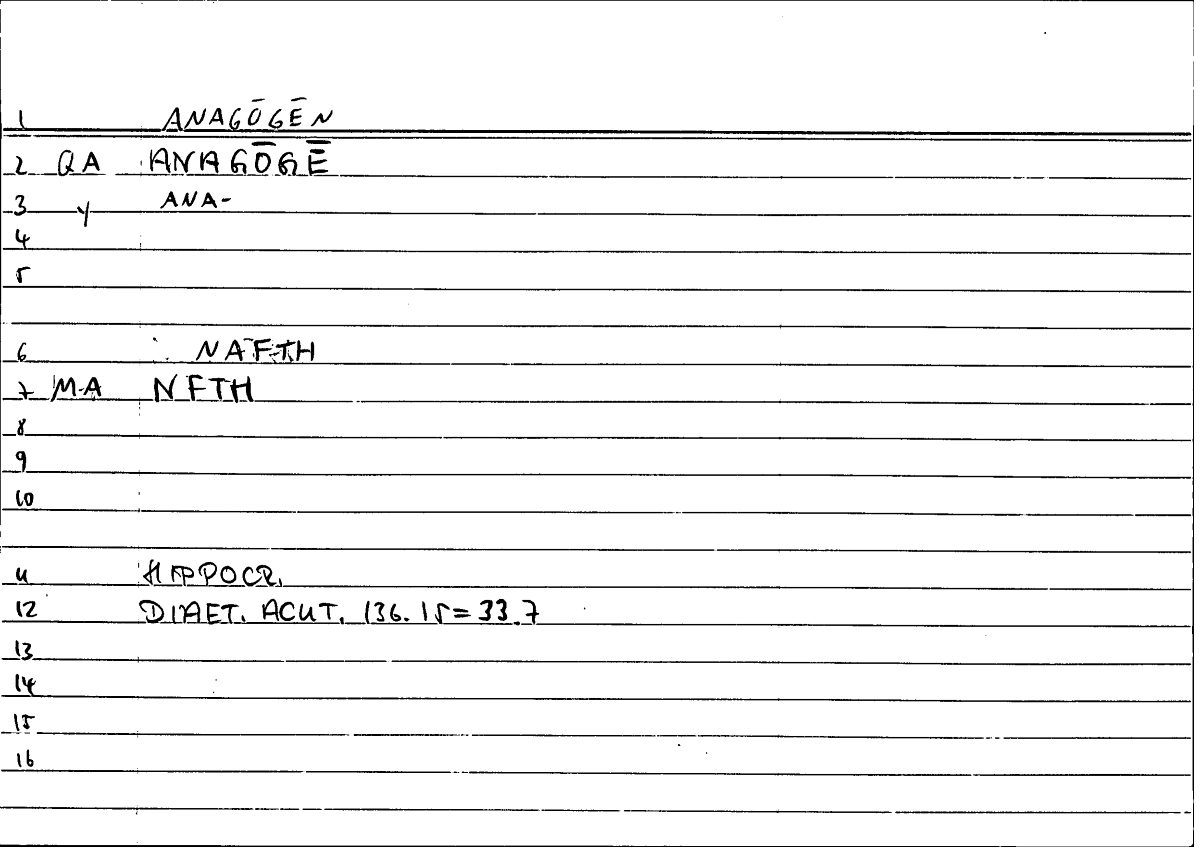 1 ANAGŌGĒN
2 QA ANAGŌGĒ
3 y ANA-
4
5
6 NAFTH
7 MA NFTH
8
9
10
11 HIPPOCR.
12 DIAET. ACUT. 136.15=33.7
13
14
15
16